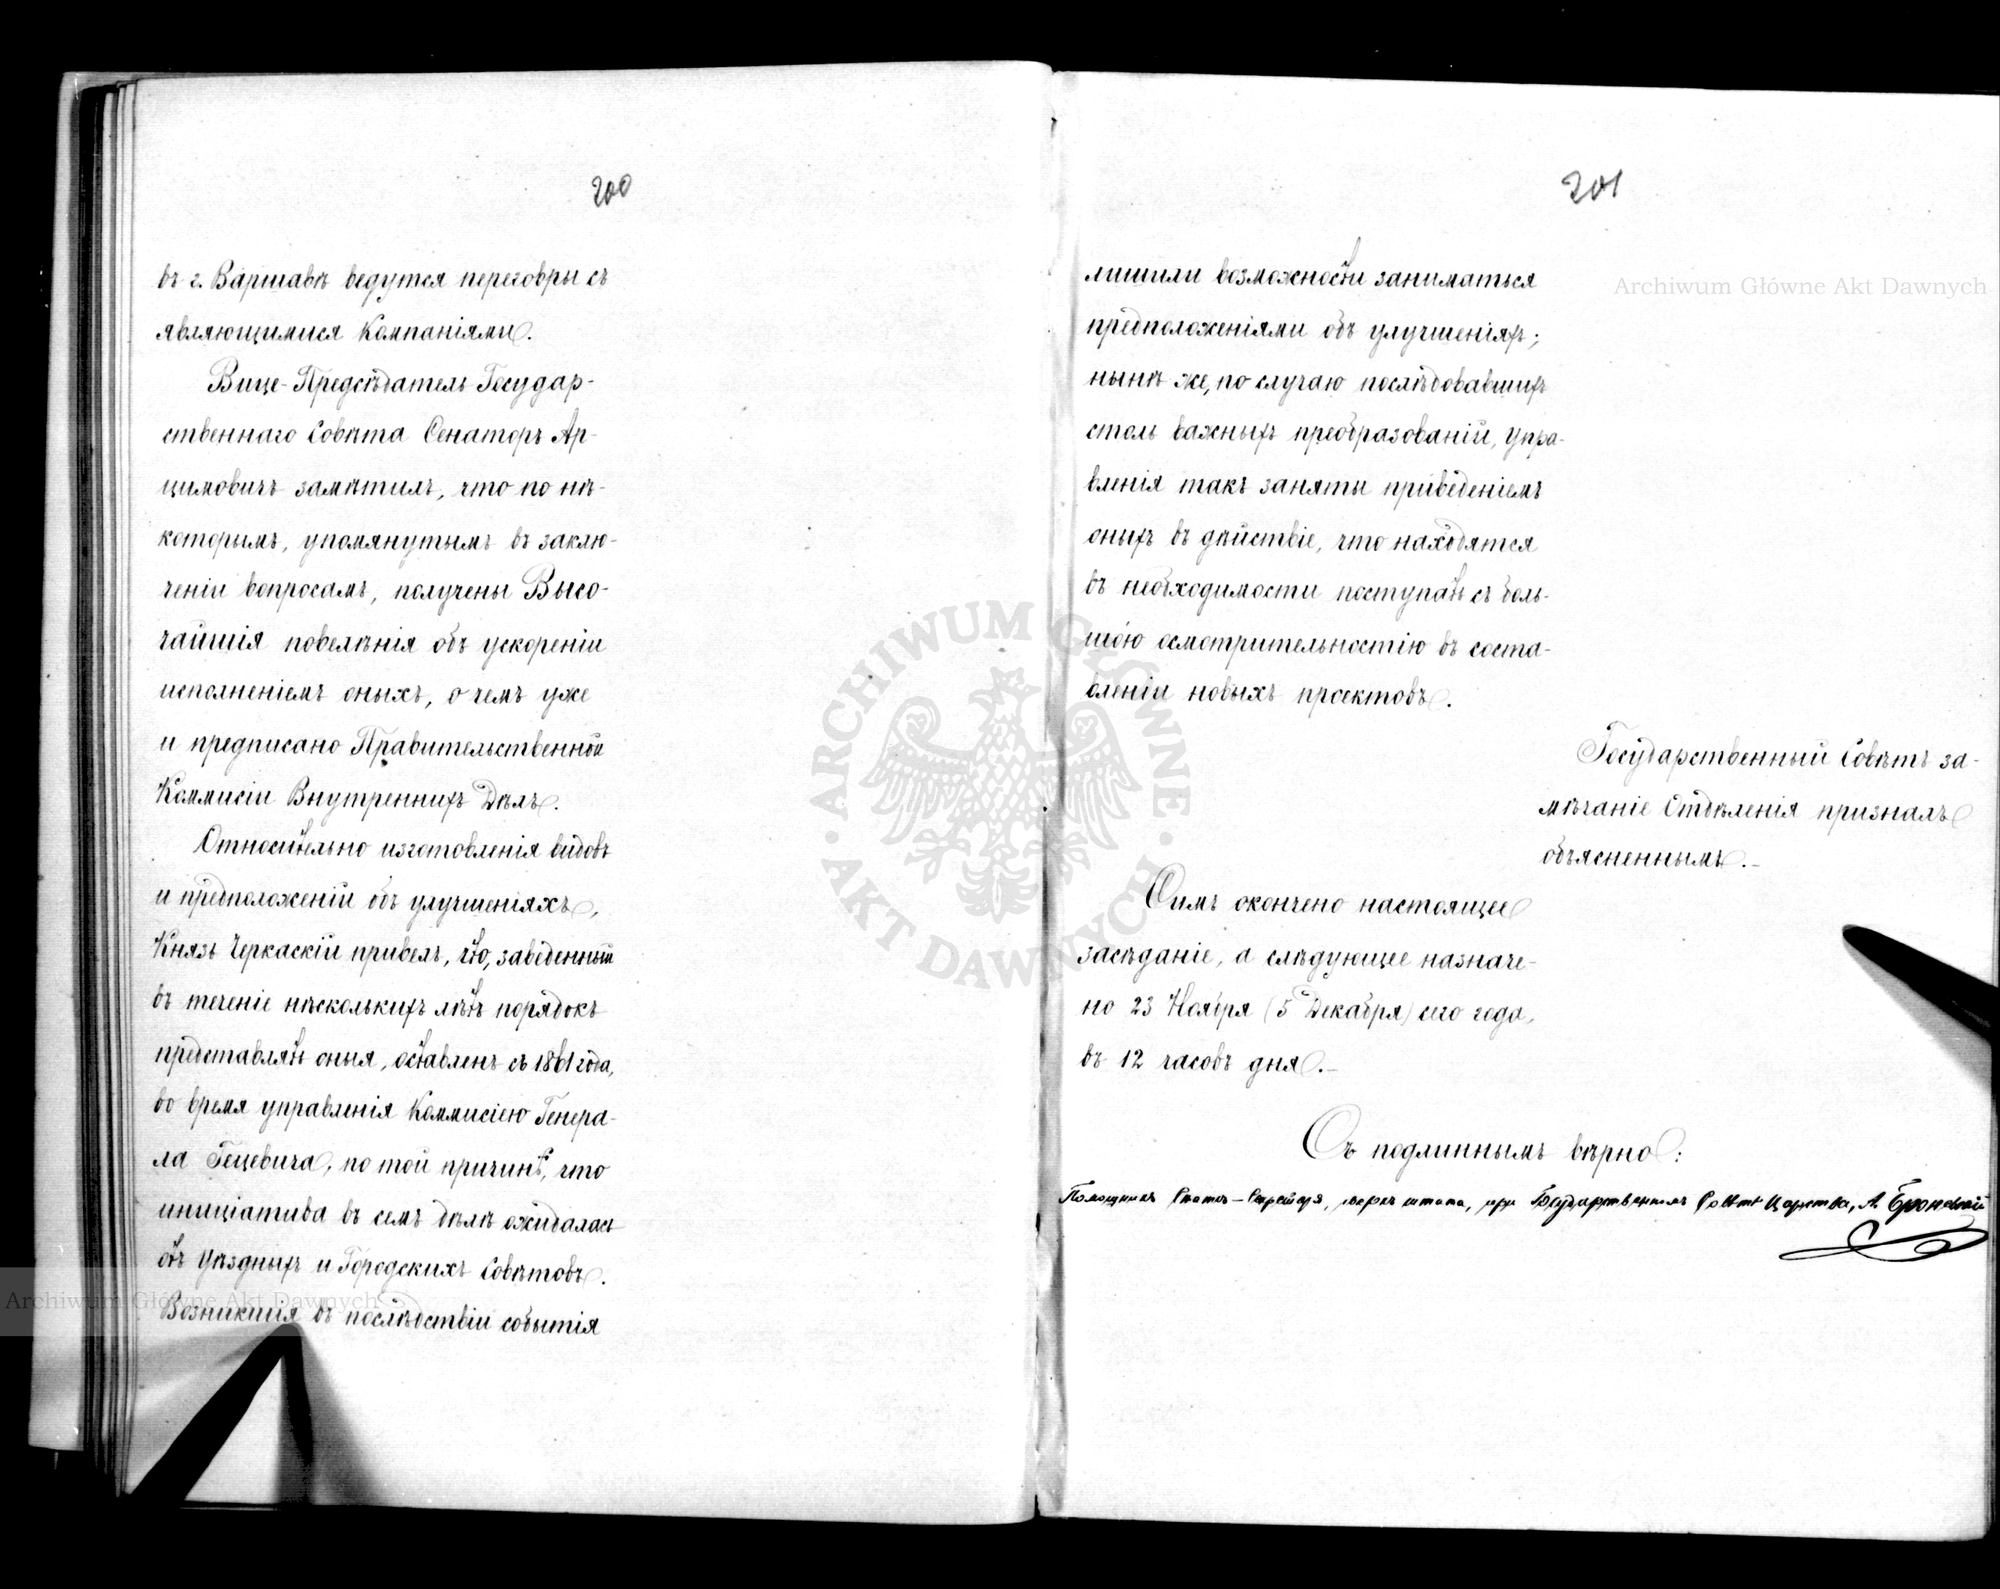 200
въ г. Варшавѣ ведутся переговры съ
являющимися Компаніями.
Вице-Предсѣдатель Государ-
ственнаго Совѣта Сенаторъ Ар-
цимовичъ замѣтилъ, что по нѣ-
которымъ, упомянутымъ въ заклю-
ченіи вопросамъ, получены Высо-
чайшія повелѣнія объ ускореніи
исполненіемъ оныхъ, о чемъ уже
и предписано Правительственной
Коммисіи Внутреннихъ Дѣлъ.
Относительно изготовленія видовъ
и предположеній объ улучшеніяхъ,
Князь Черкаскій привелъ, что, заведенный
въ теченіе нѣсколькихъ лѣтъ порядокъ
представлять оныя, оставленъ съ 1861 года,
во время управленія Коммисіею Генера-
ла Гецевича, по той причинѣ, что
иниціатива въ семъ дѣлѣ ожидалась
отъ Уѣздныхъ и Городскихъ Совѣтовъ.
Возникшія въ послѣдствіи событія
201
лишили возможности заниматься
предположеніями объ улучшеніяхъ;
нынѣ же, по случаю послѣдовавшихъ
столь важныхъ преобразованій, Упра-
вленія такъ заняты приведеніемъ
оныхъ въ дѣйствіе, что находятся
въ необходимости поступать съ боль-
шою осмотрительностію въ соста-
вленіи новыхъ проектовъ.
Государственный Совѣтъ за-
мѣчаніе Отдѣленія призналъ
объясненнымъ.-
Симъ окончено настоящее
засѣданіе, а слѣдующее назначе-
но 23 Ноября (5 Декабря) сего года,
въ 12 часовъ дня.-
Съ подлиннымъ вѣрно:
Помощникъ Статсъ-Секретаря, сверхъ штата, при Государственномъ Совѣтѣ Царства, А. Броневскій
Archiwum Główne Akt Dawnych
Archiwum Główne Akt Dawnych
ARCHIWUM GŁÓWNE · AKT DAWNYCH ·